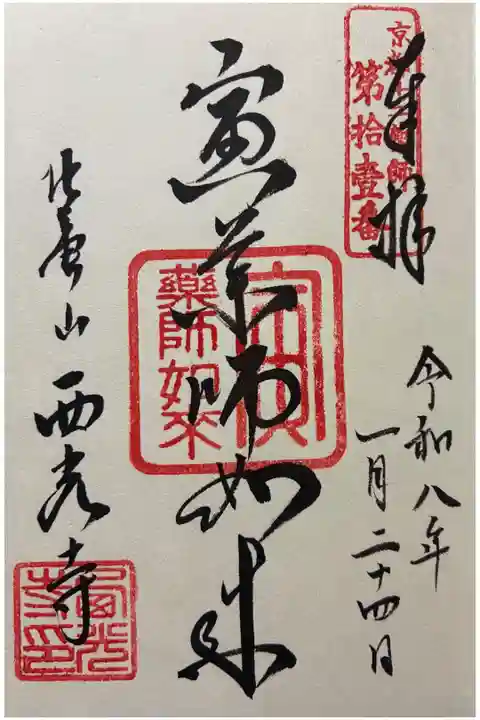 京都十二薬師
第拾壹番
奉拝
令和八年
一月二十四日
寅薬師如来
寅
薬師如来
北廬山西光寺
西光
寺印